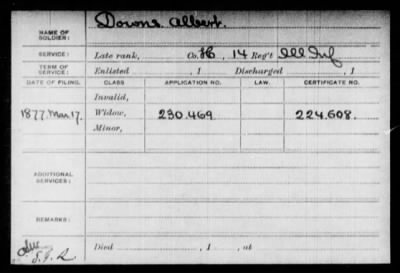 NAME OF SOLDIER: Downs Albert.
SERVICE: Late rank, Co. H, 14 Reg't Ill Inf
TERM OF SERVICE: Enlisted , 1 Discharged , 1
DATE OF FILING. CLASS APPLICATION NO. LAW. CERTIFICATE NO.
Invalid,
1877. Mar 17. Widow, 230.469. 224.608.
Minor,
ADDITIONAL SERVICES:
REMARKS:
Died , 1 , at